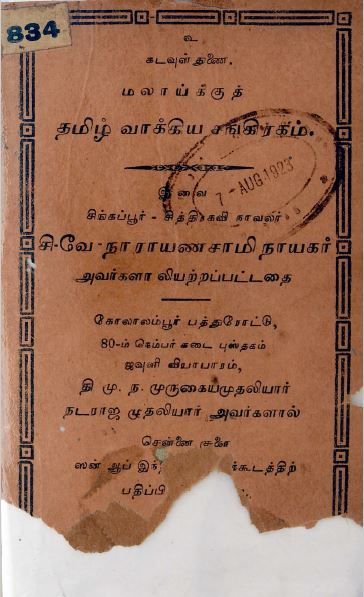 834
உ
கடவுள் துணை.
மலாய்க்குத்
தமிழ் வாக்கிய சங்கிரகம்.
7 - AUG. 1923
இவை
சிங்கப்பூர் - சித்திரகவி நாவலர்
சி-வே-நாராயணசாமி நாயகர்
அவர்களா லியற்றப்பட்டதை
கோலாலம்பூர் பத்துரோட்டு,
80-ம் நெம்பர் கடை புஸ்தகம்
ஜவுளி வியாபாரம்,
தி மு. ந. முருகையமுதலியார்
நடராஜ முதலியார் அவர்களால்
சென்னை
ஸன் ஆப்
பதிப்பி